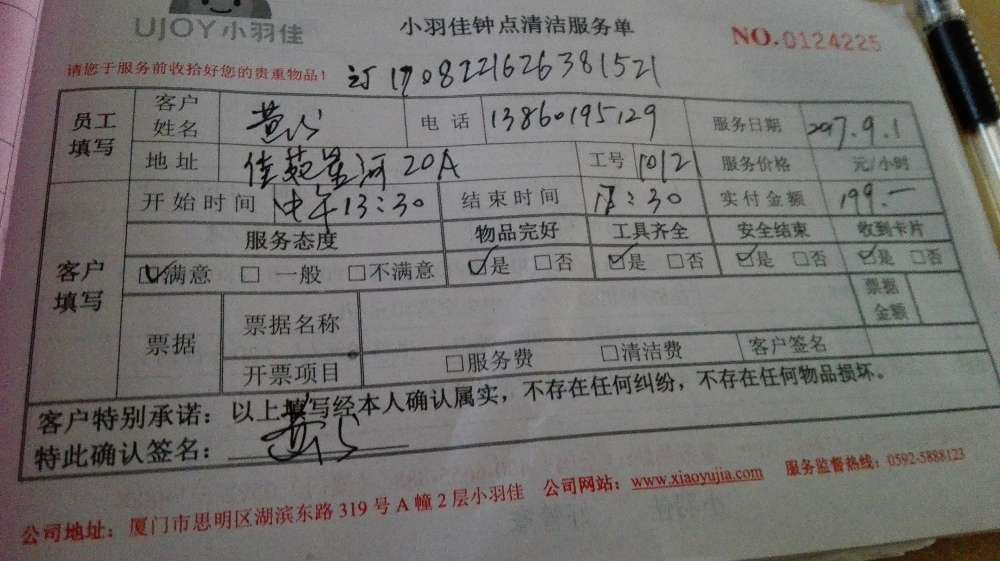 UJOY小羽佳
小羽佳钟点清洁服务单
NO.0124225
请您于服务前收拾好您的贵重物品！
订170822162638 1521
员工填写 客户姓名 黄 电话 13860195129 服务日期 2017.9.1
地址 佳苑星河20A 工号 10121 服务价格 元/小时
客户填写 开始时间 中午13:30 结束时间 17:30 实付金额 199.—
服务态度 物品完好 工具齐全 安全结束 收到卡片
☑满意 □一般 □不满意 ☑是 □否 ☑是 □否 ☑是 □否 ☑是 □否
票据 票据名称 票据金额
开票项目 □服务费 □清洁费 客户签名
客户特别承诺：以上填写经本人确认属实，不存在任何纠纷，不存在任何物品损坏。
特此确认签名：黄
公司地址：厦门市思明区湖滨东路319号A幢2层小羽佳 公司网站：www.xiaoyujia.com 服务监督热线：0592-5888123